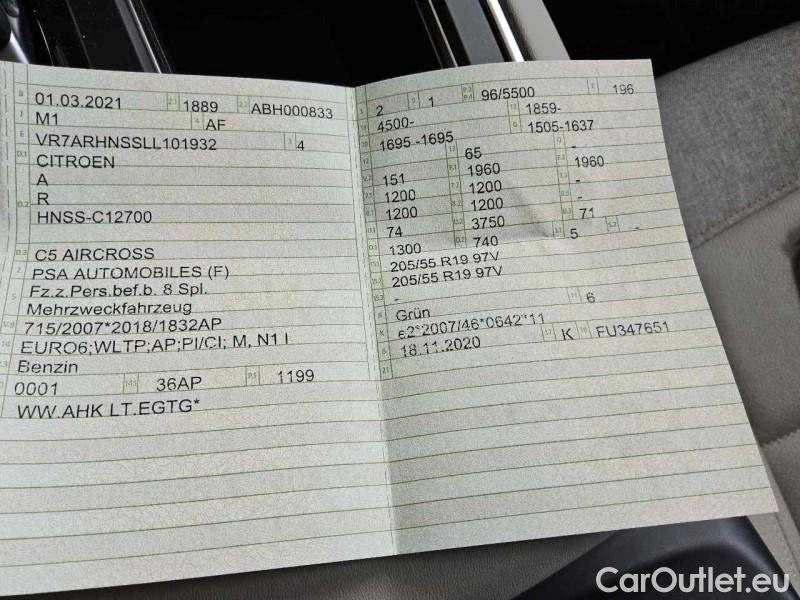 01.03.2021 1889 ABH000833
M1 AF
VR7ARHNSSLL101932 4
CITROEN
A
R
HNSS-C12700
C5 AIRCROSS
PSA AUTOMOBILES (F)
Fz.z.Pers.bef.b. 8 Spl.
Mehrzweckfahrzeug
715/2007*2018/1832AP
EURO6;WLTP;AP;PI/CI; M, N1 I
Benzin
0001 36AP 1199
WW.AHK LT.EGTG*
2 1 96/5500 196
4500- 1859-
1695 -1695 1505-1637
65 -
151 1960 1960
1200 1200 -
1200 1200 -
74 3750 71
1300 740 5 -
205/55 R19 97V
205/55 R19 97V
-
Grün 6
e2*2007/46*0642*11
18.11.2020 K FU347651
CarOutlet.eu